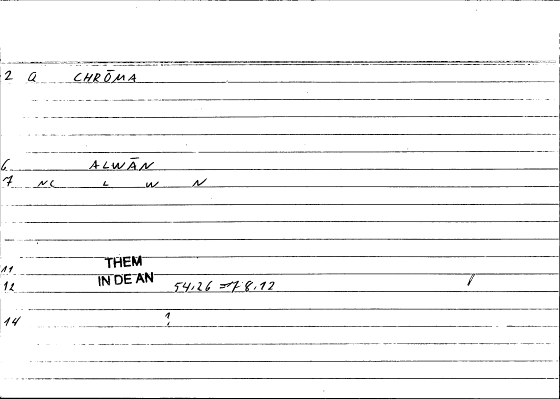 2 Q CHRŌMA
6 ALWĀN
7 NC L W N
11 THEM
12 IN DE AN 54.26 = 78.12 /
14 1